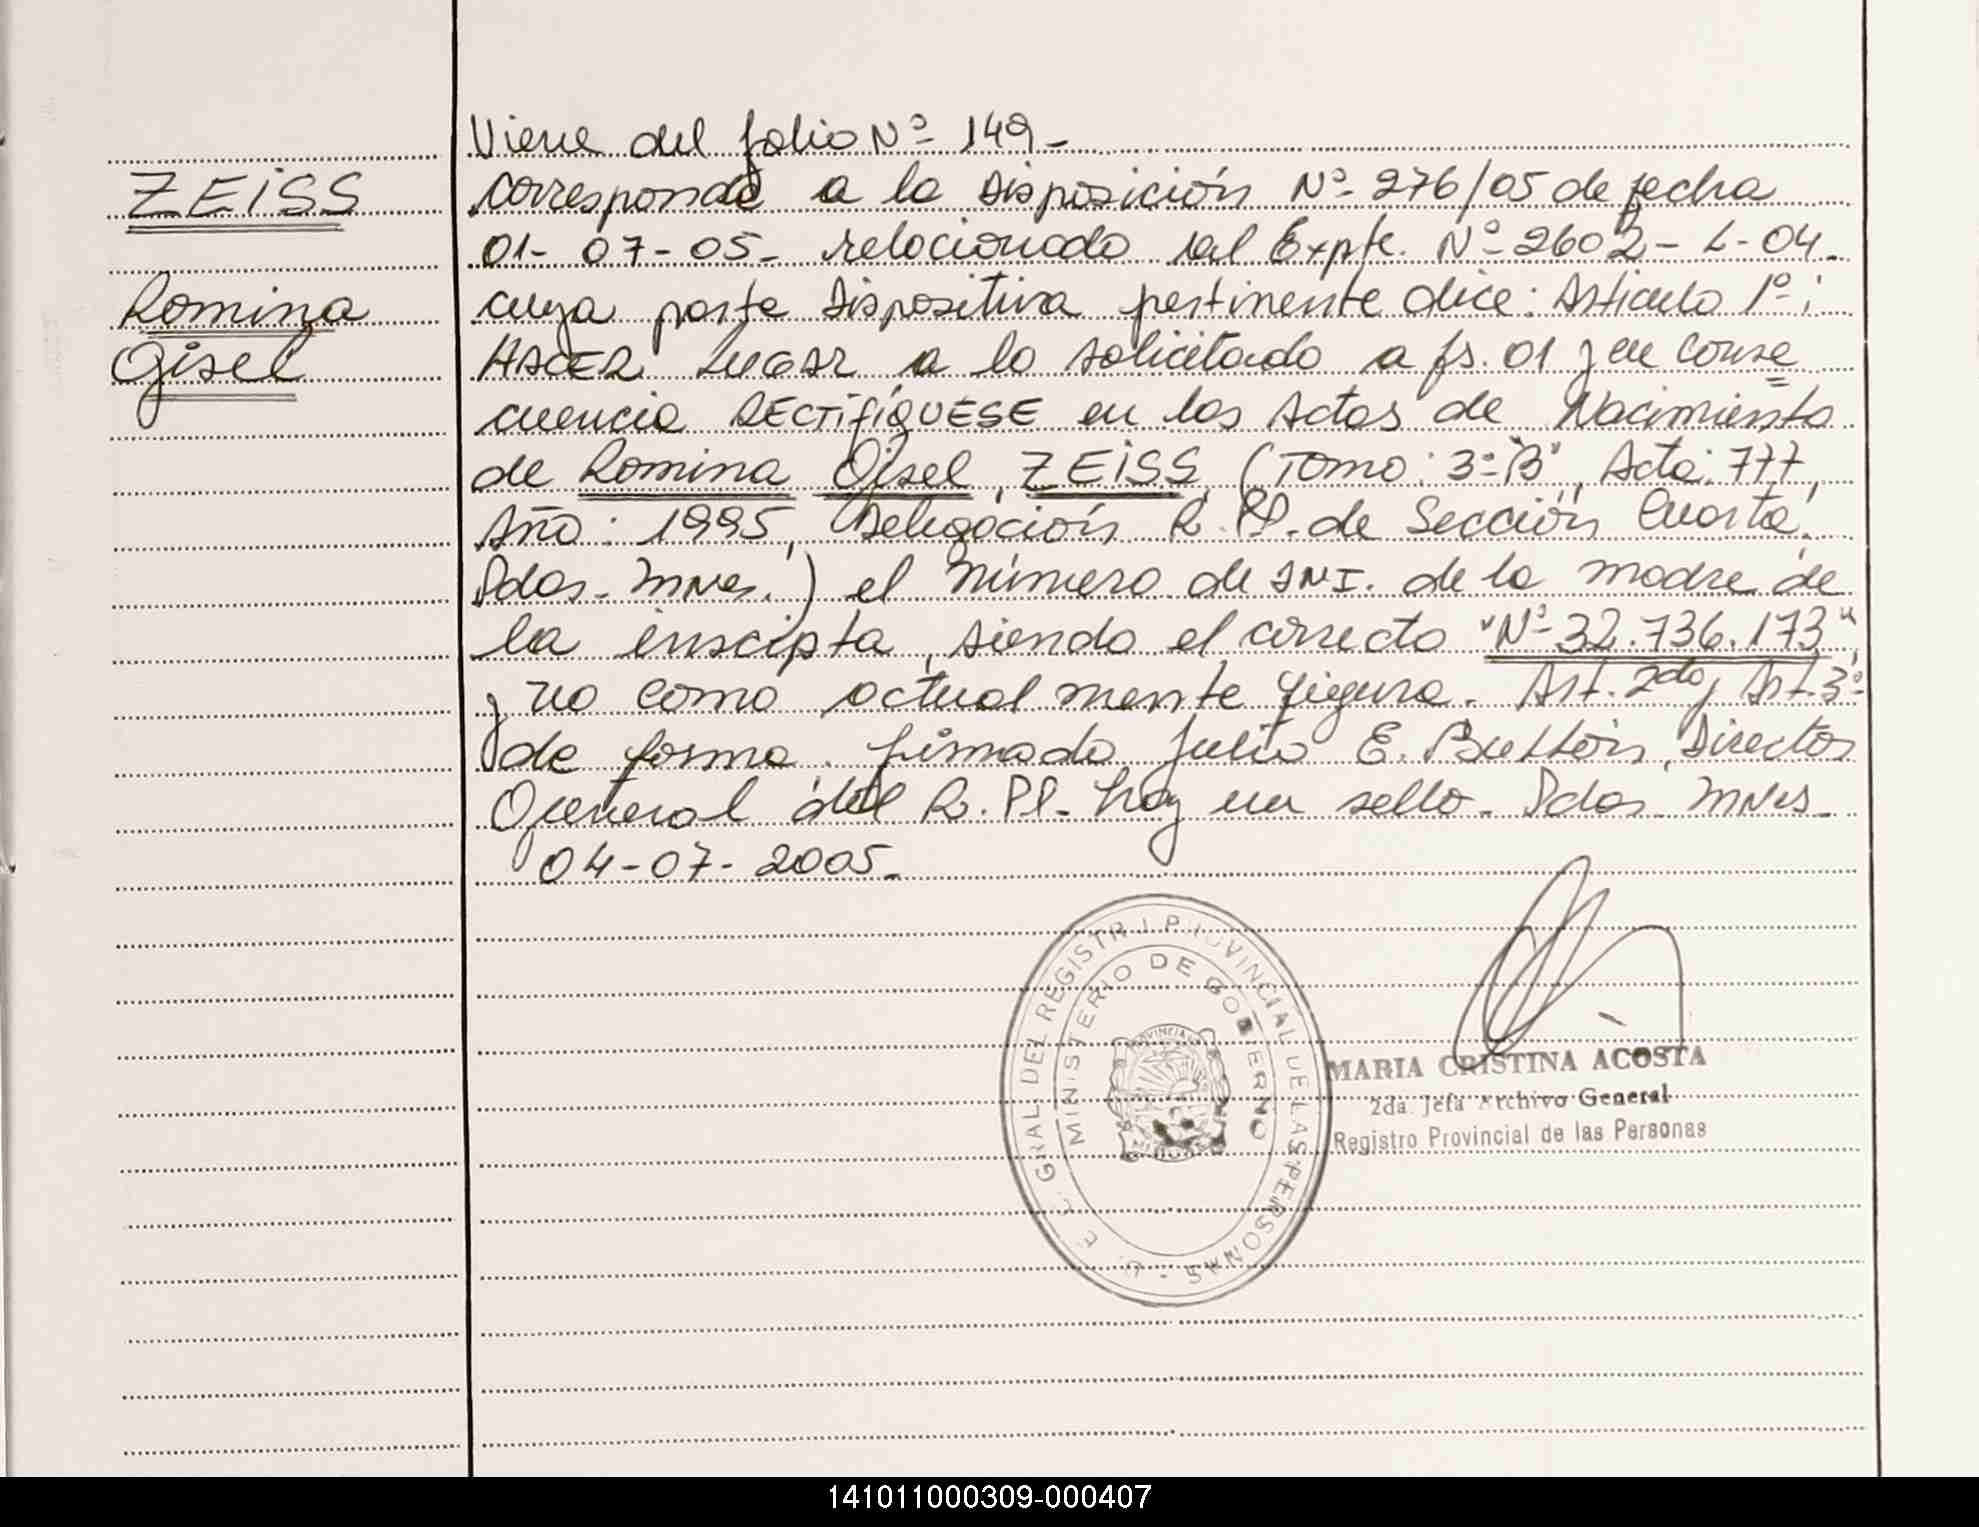 Viene del folio Nº 149-
ZEISS
corresponde a la Disposición Nº 276/05 de fecha
01-07-05- relacionado al Expte. Nº 2602-L-04-
Romina
cuya parte Dispositiva pertinente dice: Articulo 1º;
Gisel
HACER LUGAR a lo solicitado a fs. 01 y en conse
cuencia RECTIFÍQUESE en las Actas de Nacimiento
de Romina Gisel ZEISS, (Tomo: 3º "B", Acta: 777,
Año: 1995, Delegación R. Pl. de Sección Cuarta,
Pdas. Mnes.) el número de DNI. de la madre de
la inscipta, siendo el correcto "Nº 32.736.173",
y no como actualmente figura. Art. 2do y Art. 3º
de forma. firmado Julio E. Director
General del R. Pl- hay un sello- Pdas Mnes-
04-07-2005-
GRAL. DEL REGISTRO PROVINCIAL DE LAS PERSONAS -
MINISTERIO DE GOBIERNO
PROVINCIA
MISIONES
MARIA CRISTINA ACOSTA
2da. Jefa Archivo General
Registro Provincial de las Personas
141011000309-000407